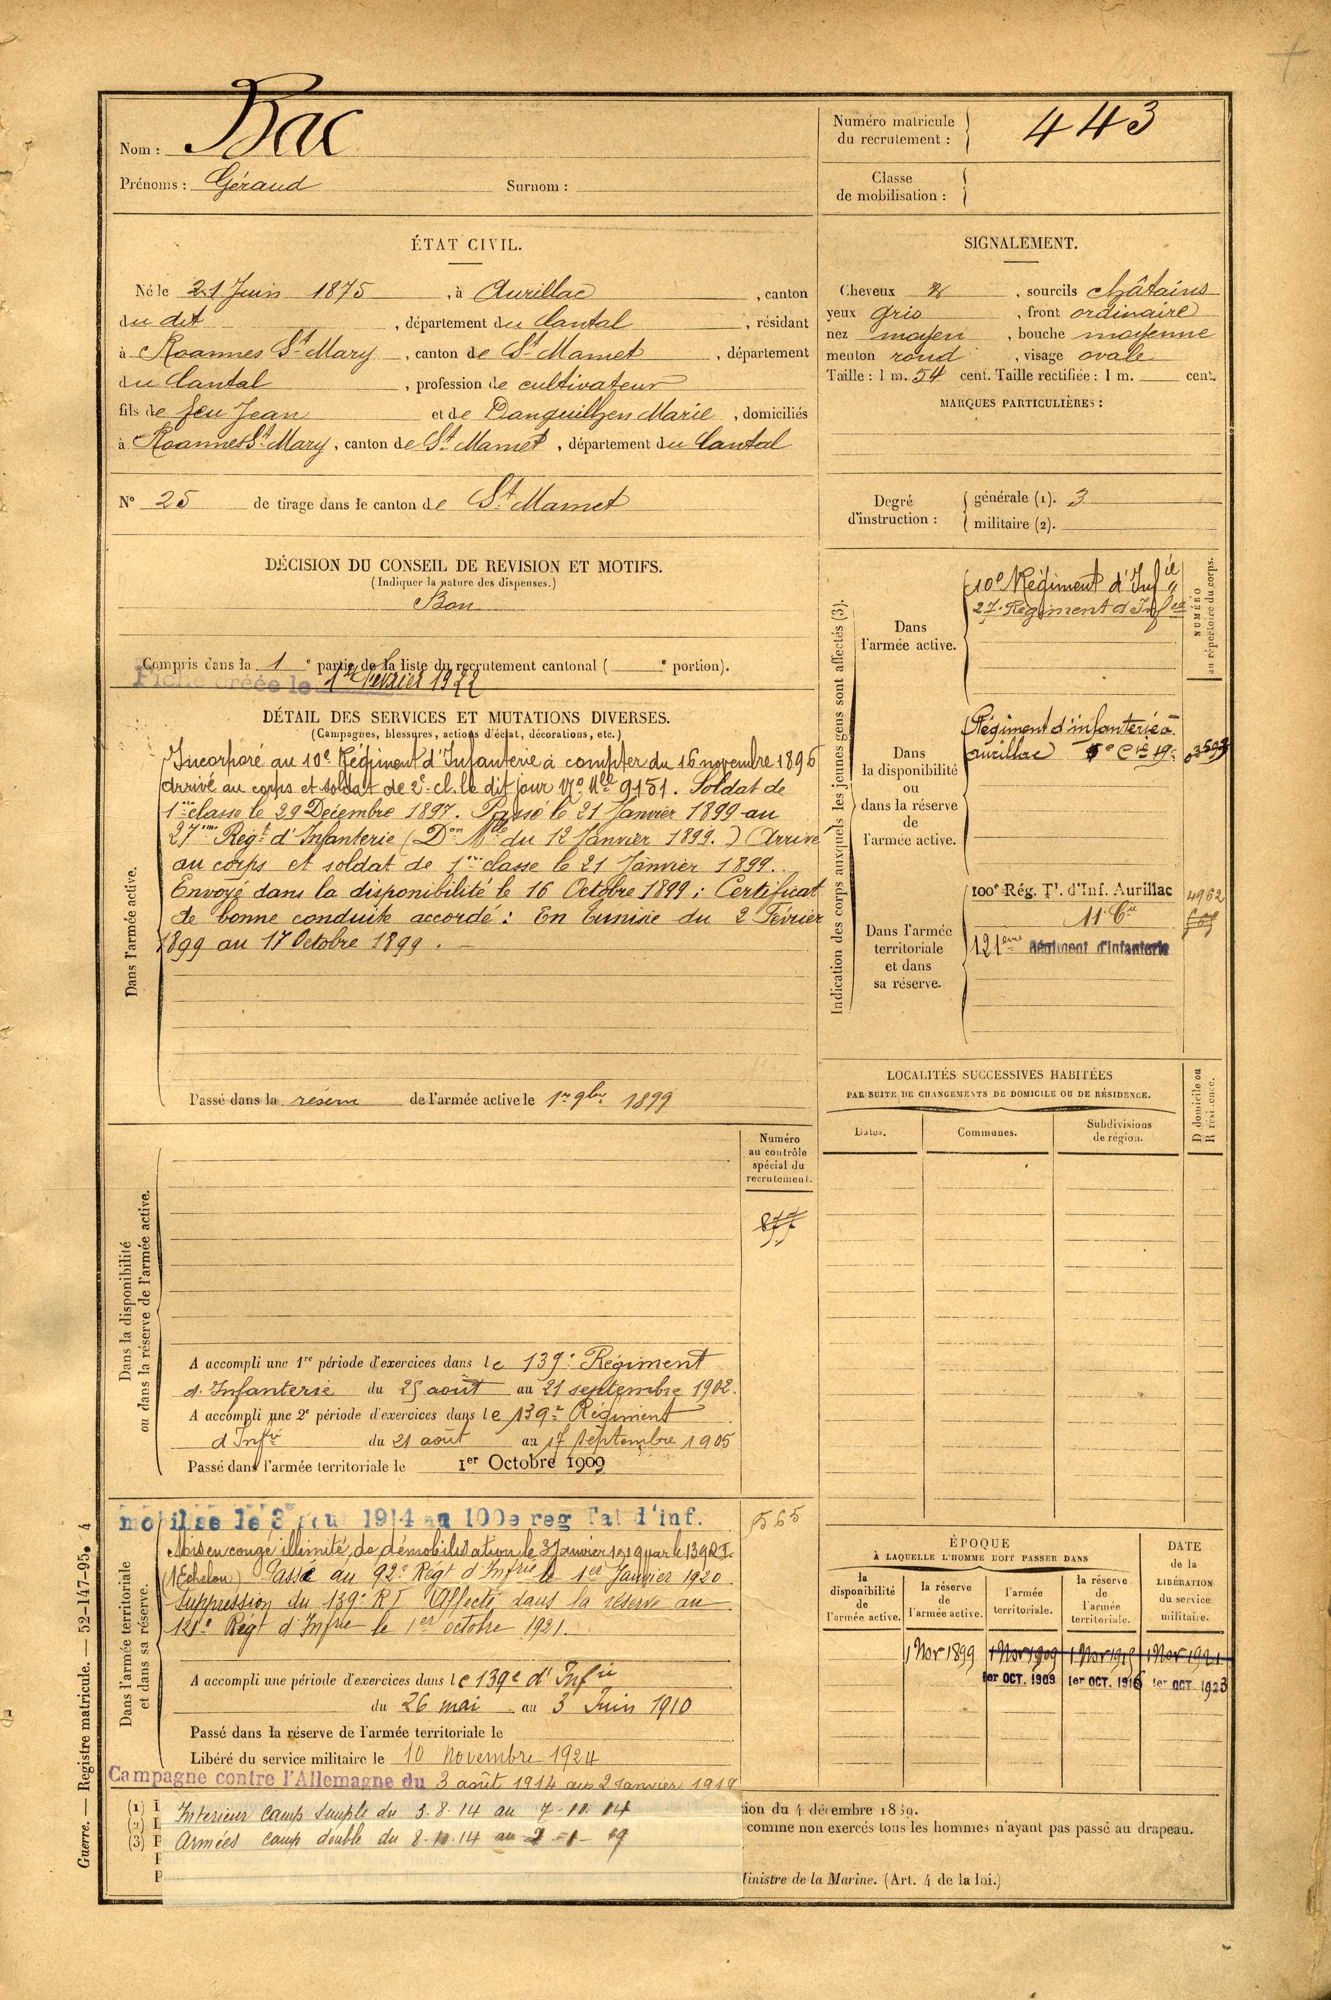 Nom : Bac
Prénoms : Géraud Surnom :
Numéro matricule
du recrutement : 443
Classe
de mobilisation :
ÉTAT CIVIL.
Né le 21 Juin 1875, à Aurillac, canton
du dit, département du Cantal, résidant
à Roannes St Mary, canton de St Mamet, département
du Cantal, profession de cultivateur
fils de feu Jean et de Danguilhen Marie, domiciliés
à Roannes St Mary, canton de St Mamet, département du Cantal
N° 25 de tirage dans le canton de St Mamet
SIGNALEMENT.
Cheveux &, sourcils châtains
yeux gris, front ordinaire
nez moyen, bouche moyenne
menton rond, visage ovale
Taille : 1 m. 54 cent. Taille rectifiée : 1 m. cent.
MARQUES PARTICULIÈRES :
Degré
d'instruction :
générale (1). 3
militaire (2).
DÉCISION DU CONSEIL DE REVISION ET MOTIFS.
(Indiquer la nature des dispenses.)
Bon
Compris dans la 1e partie de la liste du recrutement cantonal ( e portion).
Fiche créée le 1er Février 1922
DÉTAIL DES SERVICES ET MUTATIONS DIVERSES.
(Campagnes, blessures, actions d'éclat, décorations, etc.)
Dans l'armée active.
Incorporé au 10e Régiment d'Infanterie à compter du 16 novembre 1896
Arrivé au corps et soldat de 2e cl. le dit jour No Mle 9151. Soldat de
1ère classe le 29 Décembre 1897. Passé le 21 Janvier 1899 au
27me Regt d'Infanterie (Don Mlle du 12 Janvier 1899.) Arrivé
au corps et soldat de 1ère classe le 21 Janvier 1899.
Envoyé dans la disponibilité le 16 Octobre 1899 ; Certificat
de bonne conduite accordé : En Tunisie du 2 Février
1899 au 17 Octobre 1899.
Passé dans la réserve de l'armée active le 1er 9bre 1899
Indication des corps auxquels les jeunes gens sont affectés (3).
NUMÉRO
au répertoire du corps.
Dans
l'armée active.
10e Régiment d'Infie
27e Régiment d'Infie
Dans
la disponibilité
ou
dans la réserve
de
l'armée active.
Régiment d'infanterie
Aurillac
Dans l'armée
territoriale
et dans
sa réserve.
100e Rég. Tl d'Inf. Aurillac 4962
11e Cie
121ème Régiment d'Infanterie
LOCALITÉS SUCCESSIVES HABITÉES
PAR SUITE DE CHANGEMENTS DE DOMICILE OU DE RÉSIDENCE.
Dates. Communes. Subdivisions
de région.
D domicile ou
R résidence.
Numéro
au contrôle
spécial du
recrutement.
877
Dans la disponibilité
ou dans la réserve de l'armée active.
A accompli une 1re période d'exercices dans le 139e Régiment
d'Infanterie du 25 août au 21 septembre 1902.
A accompli une 2e période d'exercices dans le 139e Régiment
d'Infie du 21 août au 17 septembre 1905
Passé dans l'armée territoriale le 1er Octobre 1909
Dans l'armée territoriale
et dans sa réserve.
mobilisé le 3 août 1914 au 100e reg Tat d'inf. 565
Mis en congé illimité de démobilisation le 3 Janvier 1919 par le 139 R.I.
(1 Echelon) Passé au 92e Régt d'Infrie le 1er Janvier 1920
Suppression du 139e RI Affecté dans la réserve au
121e Régt d'Infrie le 1er octobre 1921.
A accompli une période d'exercices dans le 139e d'Infie
du 26 mai au 3 Juin 1910
Passé dans la réserve de l'armée territoriale le
Libéré du service militaire le 10 Novembre 1924
Campagne contre l'Allemagne du 3 août 1914 au 2 Janvier 1919
Interieur camp simple du 3.8.14 au 7-10-14
Armées camp double du 8.10.14 au 2-1-19
ÉPOQUE
À LAQUELLE L'HOMME DOIT PASSER DANS
DATE
de la
LIBÉRATION
du service
militaire.
la
disponibilité
de
l'armée active.
la réserve
de
l'armée active.
l'armée
territoriale.
la réserve
de
l'armée
territoriale.
1 Nov 1899 1 Nov 1909 1 Nov 1915 1 Nov 1921
1er OCT. 1909 1er OCT. 1915 1er OCT. 1923
(1)
(2)
(3)
tion du 4 décembre 1889.
comme non exercés tous les hommes n'ayant pas passé au drapeau.
Ministre de la Marine. (Art. 4 de la loi.)
Guerre. — Registre matricule. — 52-147-95. 4